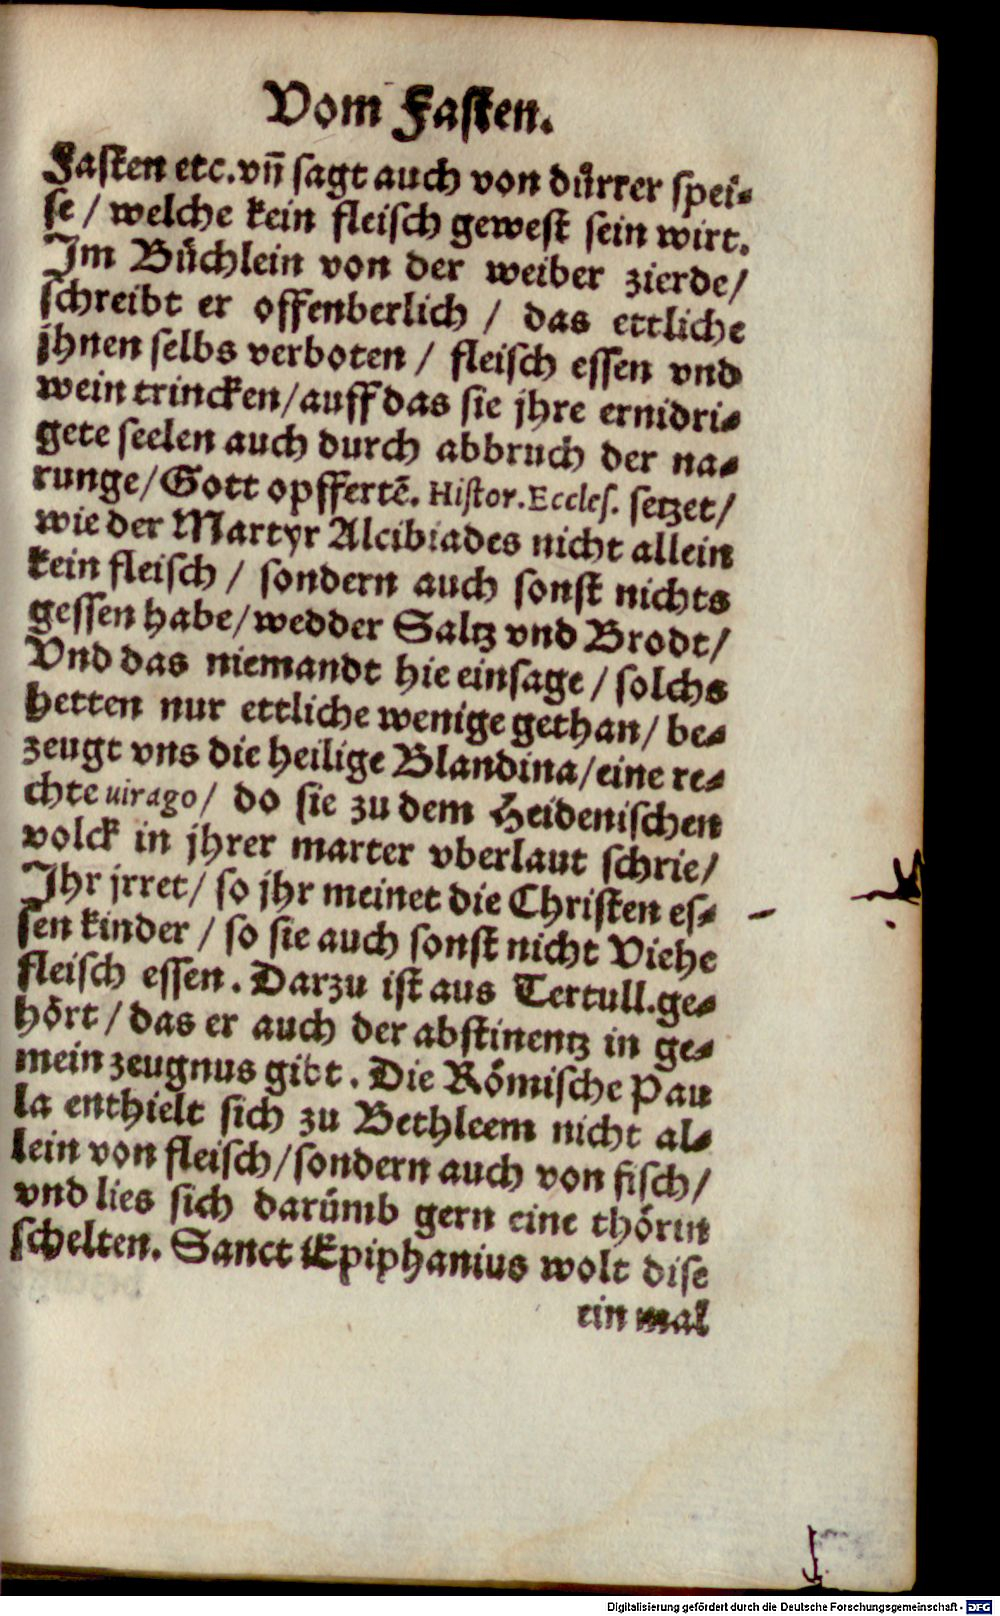 Vom Fasten.
Fasten etc. vñ sagt auch von duͤrrer spei⸗
se / welche kein fleisch gewest sein wirt.
Im Buͤchlein von der weiber zierde /
schreibt er offenberlich / das ettliche
jhnen selbs verboten / fleisch essen vnd
wein trincken / auff das sie jhre ernidri⸗
gete seelen auch durch abbruch der na⸗
runge / Gott opffertē. Histor. Eccles. setzet /
wie der Martyr Alcibiades nicht allein
kein fleisch / sondern auch sonst nichts
gessen habe / wedder Saltz vnd Brodt /
Vnd das niemandt hie einsage / solchs
hetten nur ettliche wenige gethan / be⸗
zeugt vns die heilige Blandina / eine re⸗
chte uirago / do sie zu dem Heidenischen
volck in jhrer marter vberlaut schrie /
Ihr jrret / so jhr meinet die Christen es⸗
sen kinder / so sie auch sonst nicht Viehe
fleisch essen. Darzu ist aus Tertull. ge⸗
hoͤrt / das er auch der abstinentz in ge⸗
mein zeugnus gibt. Die Roͤmische Pau
la enthielt sich zu Bethleem nicht al⸗
lein von fleisch / sondern auch von fisch /
vnd lies sich daruͤmb gern eine thoͤrin
schelten. Sanct Epiphanius wolt dise
ein mal
Digitalisierung gefördert durch die Deutsche Forschungsgemeinschaft - DFG